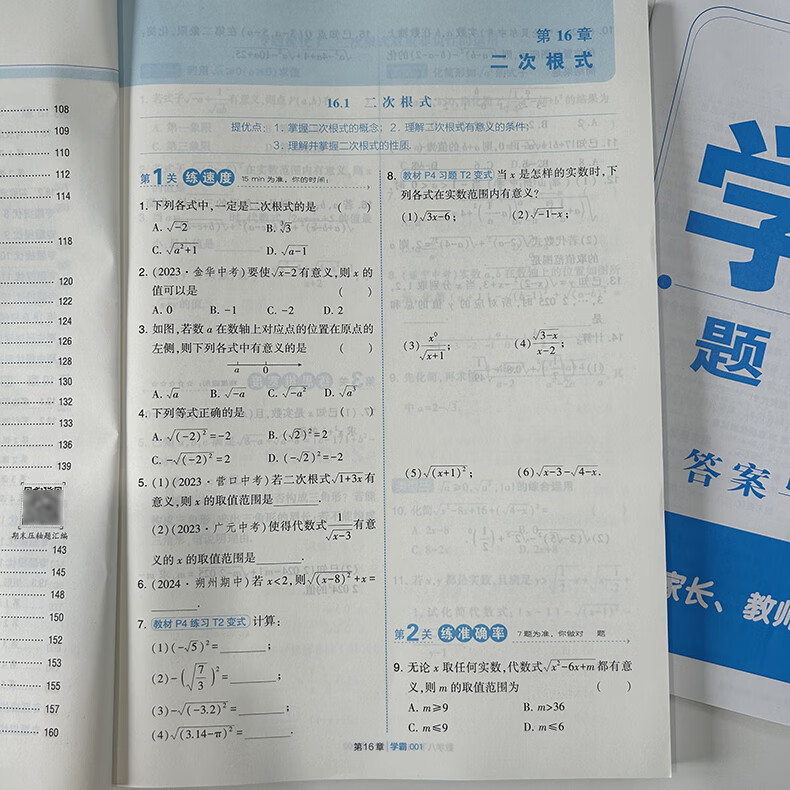 108
109
110
112
114
118
120
122
124
126
128
130
132
133
136
139
期末压轴题汇编
143
145
148
150
155
157
160
第 16 章
二次根式
16.1 二次根式
提优点：1. 掌握二次根式的概念；2. 理解二次根式有意义的条件；
3. 理解并掌握二次根式的性质.
第1关 练速度 15 min为准，你的时间：
1. 下列各式中，一定是二次根式的是 ( )
A. √-2 B. ∛3
C. √a²+1 D. √a-1
2. (2023·金华中考)要使√x-2有意义，则 x 的
值可以是 ( )
A. 0 B. -1 C. -2 D. 2
3. 如图，若数 a 在数轴上对应点的位置在原点的
左侧，则下列各式中有意义的是 ( )
a 0
A. √a B. √-a C. √-a² D. √a³
4. 下列等式正确的是 ( )
A. √(-2)²=-2 B. (√2)²=2
C. -√(-2)²=2 D. (-√2)²=-2
5. (1)(2023·营口中考)若二次根式√1+3x有
意义，则 x 的取值范围是________.
(2)(2023·广元中考)使得代数式1/√x-3有意
义的 x 的取值范围是________.
6. (2024·朔州期中)若 x<2，则√(x-8)²+x=
________.
7. 教材 P4 练习 T2 变式 计算：
(1)(-√5)²=________；
(2)-(√7/3)²=________；
(3)-√(-3.2)²=________；
(4)√(3.14-π)²=________.
8. 教材 P4 习题 T2 变式 当 x 是怎样的实数时，下
列各式在实数范围内有意义？
(1)√3x-6； (2)√-1-x；
(3)x⁰/√x+1； (4)√3-x/x-2；
(5)√(x+1)²； (6)√x-3-√4-x.
第2关 练准确率 7题为准，你做对 题
9. 无论 x 取任何实数，代数式√x²-6x+m都有意
义，则 m 的取值范围为 ( )
A. m≥9 B. m>36
C. m≤9 D. m≤6
第16章 学霸 001
学
题
答案
家长、教师